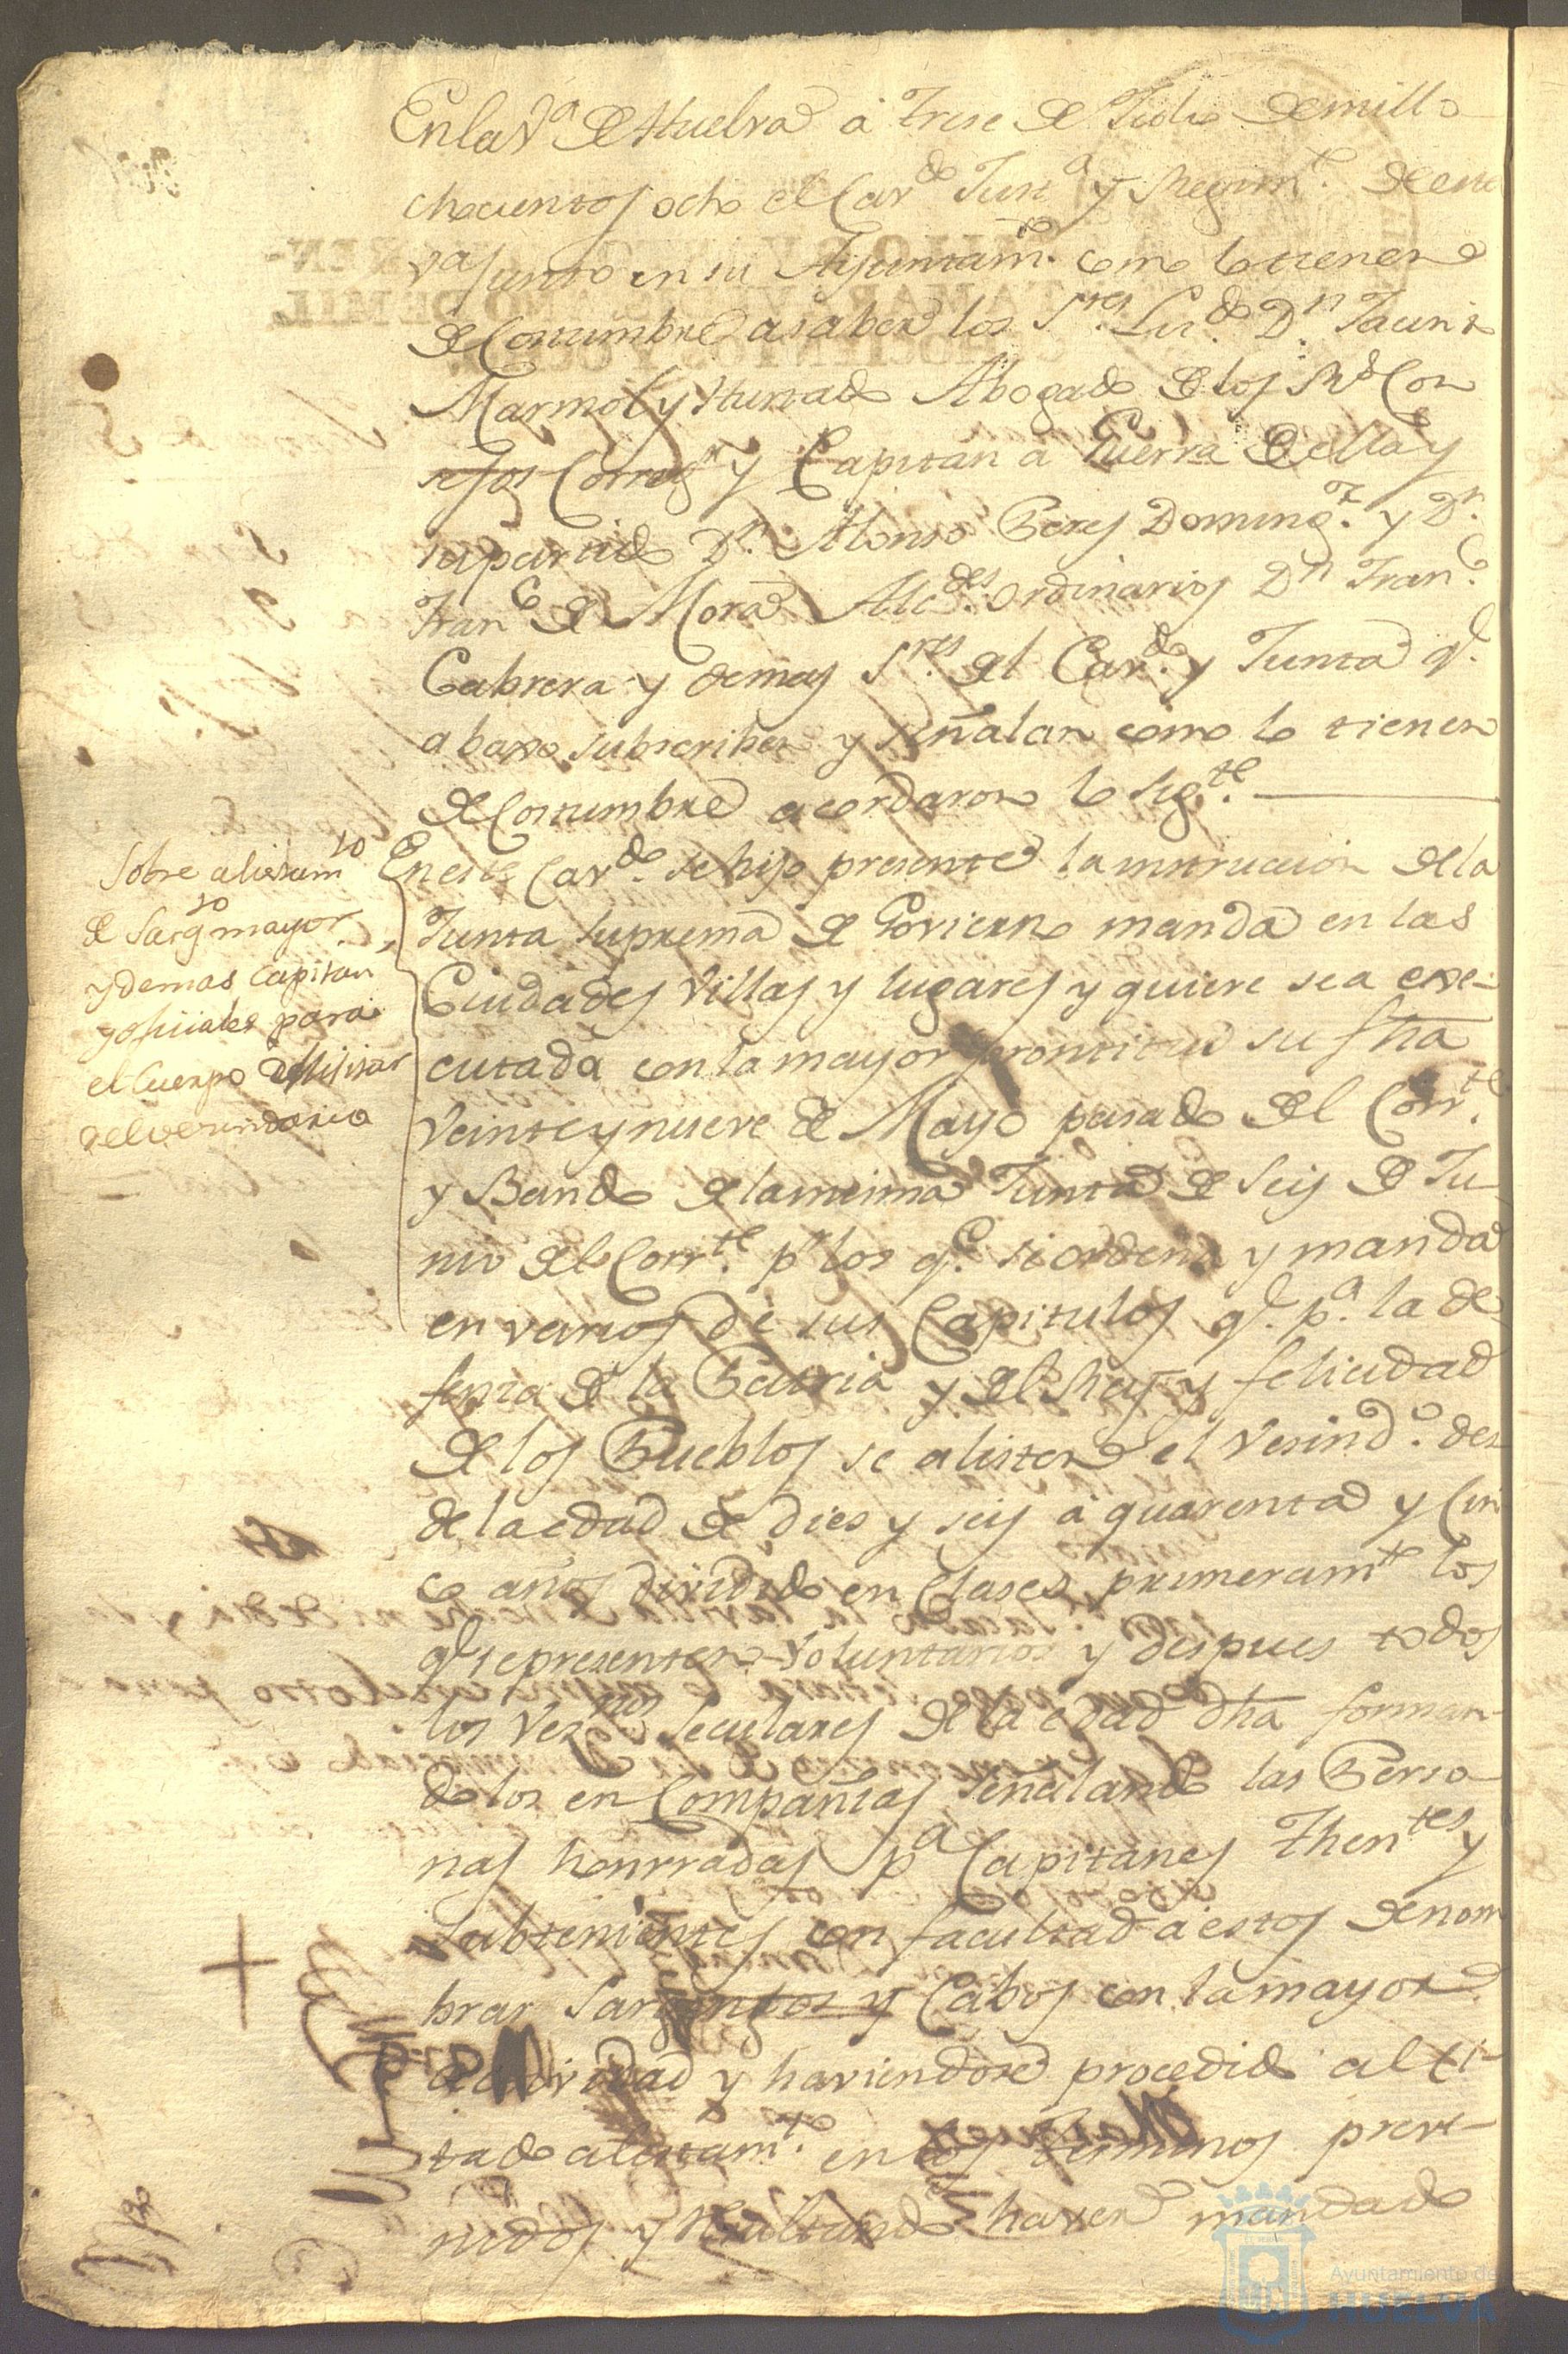 En la V.ª de Huelva á trese de Julio de mill o
chocientos ocho el Cav.do Just.ª y Regim.to de esta
V.ª junto en su Ayuntam.to como lo tienen
de Costumbre a saber los S.res Lic.do D.n Jacint
Marmol y Hurtado Abogado de los R.s Con
sejos Correg.r y Capitan a Guerra de ella y
su partido D.n Alonso Perez Doming.z y D.n
Fran.co de Mora Alc.des ordinarios D.n Fran.co
Cabrera y demas S.res del Cav.do y Junta q.e
abaxo subscriben y señalan como lo tienen
de Costumbre acordaron lo sig.te
Sobre alistam.to
de Sarg.to mayor
y demas Capitan
y oficiales para
el Cuerpo Militar
del vecindario
En este Cav.do se hiso presente la instruccion de la
Junta Suprema de Govierno manda en las
Ciudades Villas y lugares y quiere sea exe-
cutada con la mayor prontitud su fha
veinte y nueve de Mayo pasado del Corr.te
y Bando de la misma Junta de Seis de Ju-
nio del Corr.te p.r los q.e se ordena y manda
en varios de sus Capitulos q.e p.ª la de-
fensa de la Patria y del Rey y felicidad
de los Pueblos se alisten el Vesind.o des
de la edad de dies y seis á quarenta y Cin
co años dividido en Clases primeram.te los
q.e se presenten Voluntarios y despues todos
los Vez.nos Seculares de la edad dha forman-
dolos en Compañias señalando las Perso-
nas honrradas p.ª Capitanes Thent.es y
Subtenientes con facultad á estos de nom
brar Sargentos y Cabos con la mayor
actividad y haviendose procedido al ci-
tado alistam.to en los terminos preve-
nidos y Resultando haver mandado
Ayuntamiento de
HUELVA